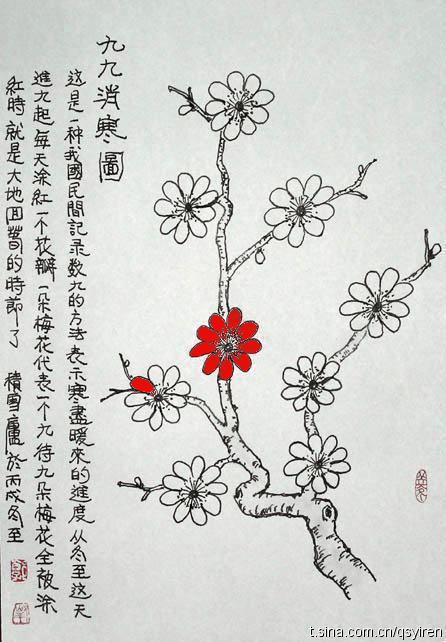 九九消寒圖
这是一种我國民間記录数九的方法表示寒盡暖來的進度从冬至这天
進九起每天涂紅一个花瓣一朵梅花代表一个九待九朵梅花全被涂
紅時就是大地回春的時節了 積雪廬於丙戌冬至
t.sina.com.cn/qsyiren